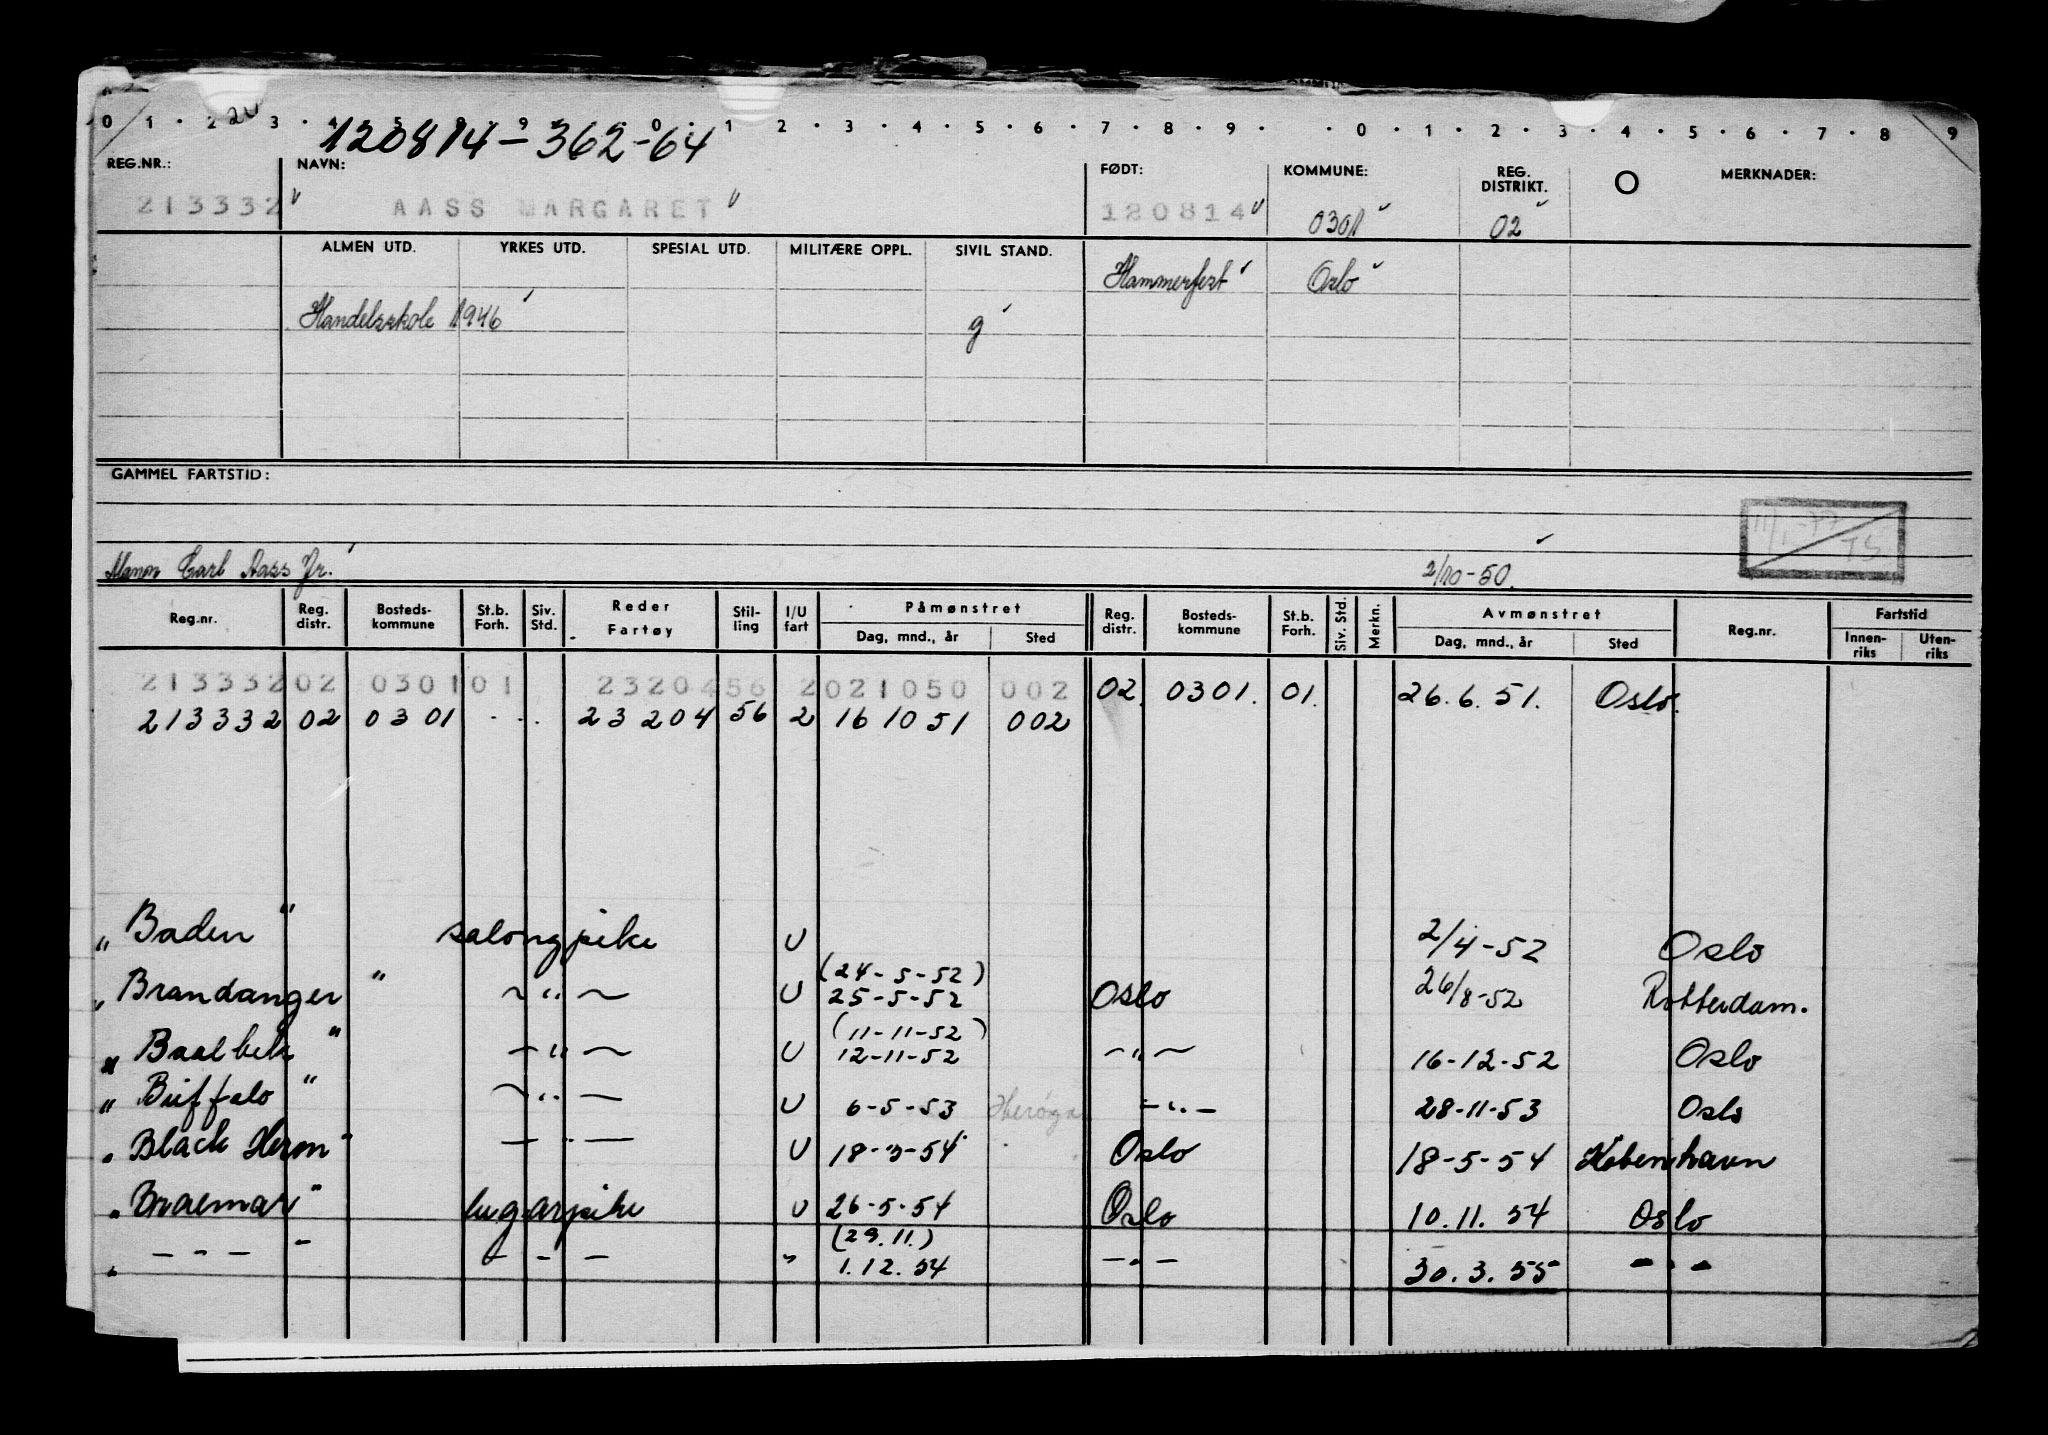 0 1 2 3 4 5 8 9 0 1 2 3 4 5 6 7 8 9 0 1 2 3 4 5 6 7 8 9
120814-362-64
REG.NR.: NAVN: FØDT: KOMMUNE: REG. DISTRIKT. O MERKNADER:
213332 AASS MARGARET 120814 0301 02
ALMEN UTD. YRKES UTD. SPESIAL UTD. MILITÆRE OPPL. SIVIL STAND.
Hammerfest Oslo
Handelsskole 1946 g
GAMMEL FARTSTID:
11/1-77
TS
Mann Carl Aass Jr. 2/10-50.
Reg.nr. Reg. distr. Bosteds-kommune St.b. Forh. Siv. Std. Reder Fartøy Stil-ling I/U fart Påmønstret Dag, mnd., år Sted Reg. distr. Bosteds-kommune St.b. Forh. Siv. Std. Merkn. Avmønstret Dag, mnd., år Sted Reg.nr. Fartstid Innen-riks Uten-riks
213332 02 0301 01 23204 56 2 021050 002 02. 0301. 01. 26.6.51. Oslo.
213332 02 0301 - . . 23204 56 2 161051 002
"Baden" salongpike U 2/4-52 Oslo
(24-5-52)
"Brandanger" ~ " ~ U 25-5-52 Oslo 26/8-52 Rotterdam.
(11-11-52)
"Baalbek" - " - U 12-11-52 - " - 16-12-52 Oslo
"Buffalo" - " - U 6-5-53 - " - 28-11-53 Oslo
"Black Heron" - " - U 18-3-54 Oslo 18-5-54 København
"Braemar" lugarpike U 26-5-54 Oslo 10.11.54 Oslo
(29.11.)
" - " - " - - - " 1.12.54 - " - 30.3.55 - " -